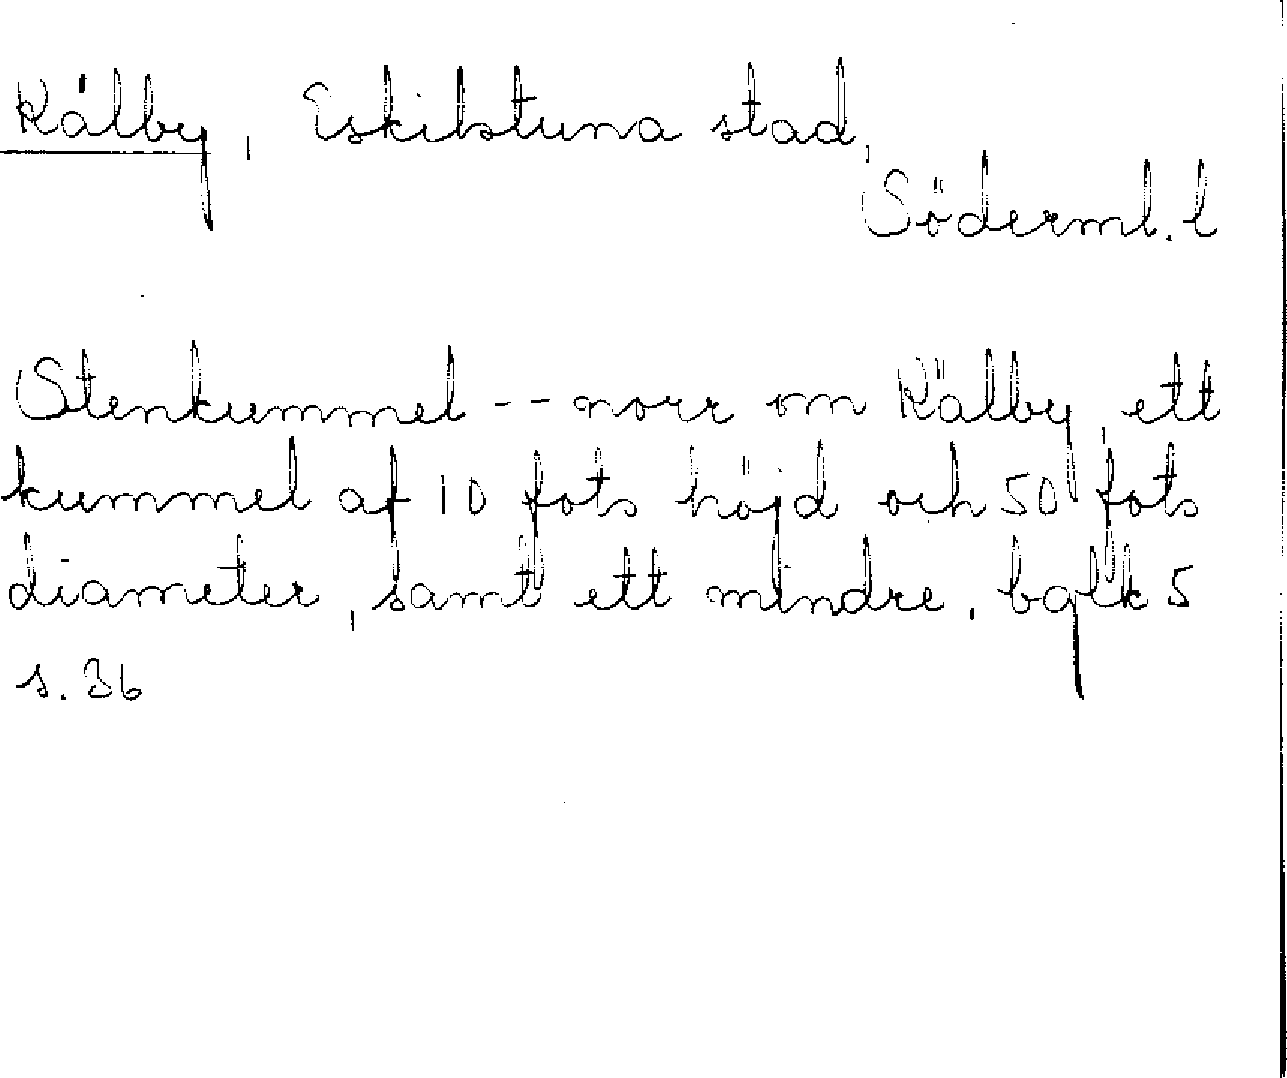 Kälby, Eskilstuna stad,
Söderml. l
Stenkummel -- norr om Kälby, ett
kummel af 10 fots höjd och 50 fots
diameter, samt ett mindre.
s. 36